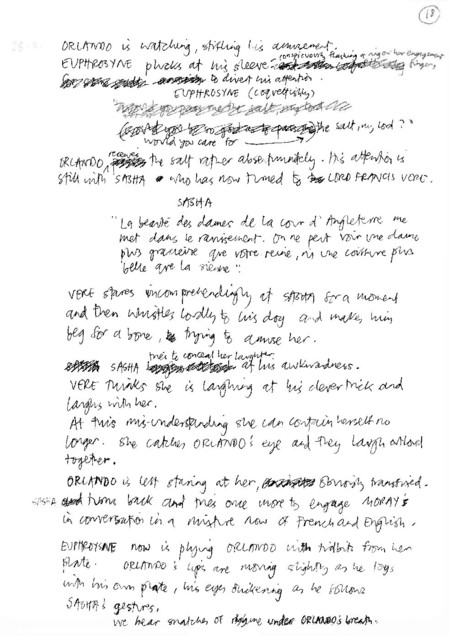 18
ORLANDO is watching, stifling his amusement.
conspicuously flashing a ring on her engagement
EUPHROSYNE plucks at his sleeve finger,
to divert his attention.
EUPHROSYNE (coquettishly)
would you pass me the salt, my lord
the salt, my lord?"
would you care for
receives
ORLANDO the salt rather absentmindedly. His attention is
still with SASHA who has now turned to LORD FRANCIS VERE.
SASHA
"La beauté des dames de la cour d'Angleterre me
met dans le ravissement. On ne peut voir une dame
plus gracieuse que votre reine, ni une coiffure plus
belle que la sienne".
VERE stares uncomprehendingly at SASHA for a moment
and then whistles loudly to his dog and makes him
beg for a bone, trying to amuse her.
tries to conceal her laughter
SASHA at his awkwardness.
VERE thinks she is laughing at his clever trick and
laughs with her.
At this mis-understanding she can contain herself no
longer. She catches ORLANDO's eye and they laugh out loud
together.
ORLANDO is left staring at her, obviously transfixed.
SASHA turns back and tries once more to engage MORAY
in conversation in a mixture now of French and English.
EUPHROSYNE now is plying ORLANDO with tidbits from her
plate. ORLANDO's lips are moving slightly as he toys
with his own plate, his eyes flickering as he follows
SASHA's gestures.
We hear snatches of rhyme under ORLANDO's breath.